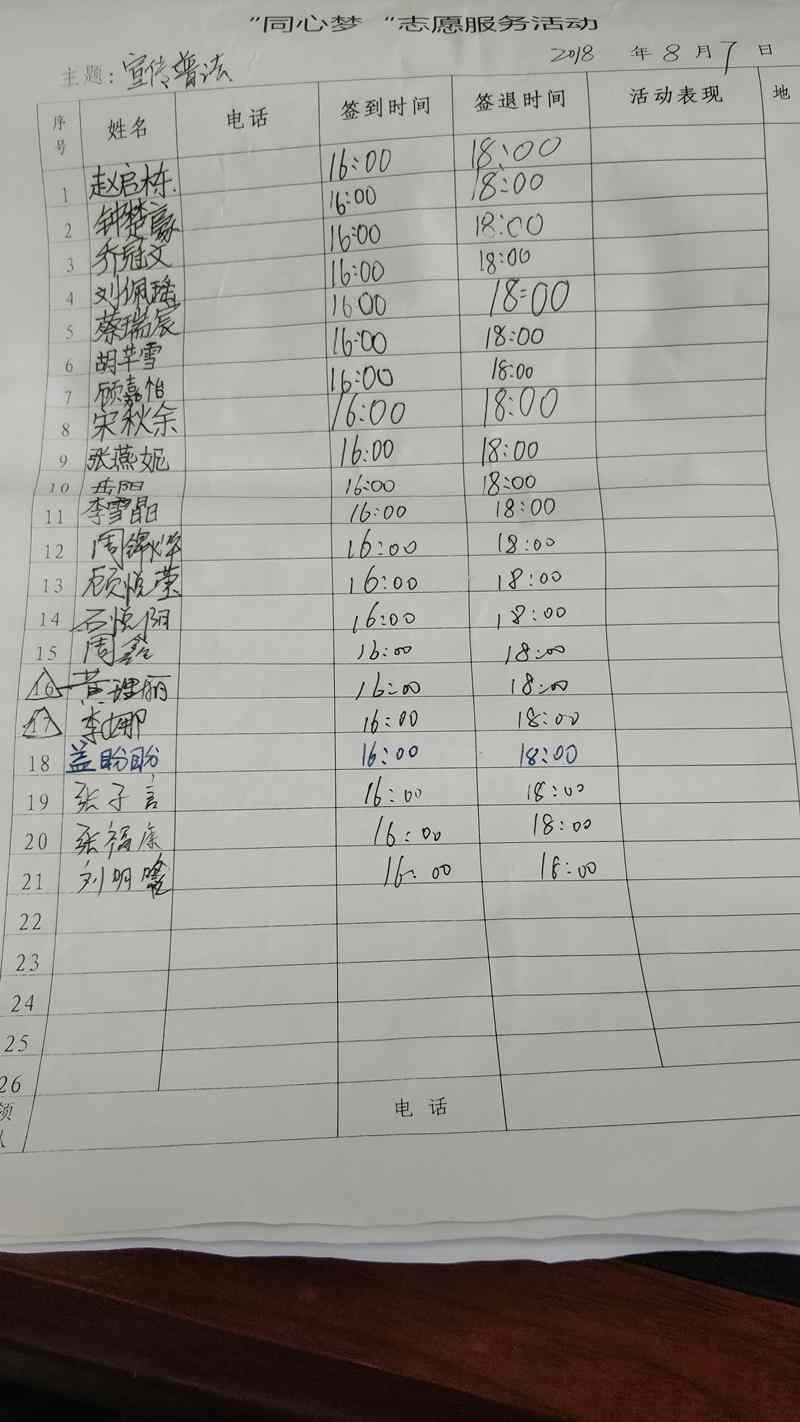 "同心梦"志愿服务活动
2018 年 8 月 7 日
主题：宣传普法
序号 姓名 电话 签到时间 签退时间 活动表现 地
1 赵启栋 16:00 18:00
2 钟楚豪 16:00 18:00
3 乔冠文 16:00 18:00
4 刘佩瑶 16:00 18:00
5 蔡瑞宸 16:00 18:00
6 胡芊雪 16:00 18:00
7 顾嘉怡 16:00 18:00
8 宋秋余 16:00 18:00
9 张燕妮 16:00 18:00
10 岳阳 16:00 18:00
11 李雪晶 16:00 18:00
12 周锦烨 16:00 18:00
13 顾悦莹 16:00 18:00
14 石悦阳 16:00 18:00
15 周鑫 16:00 18:00
16 黄理丽 16:00 18:00
17 李娜 16:00 18:00
18 盖盼盼 16:00 18:00
19 张子言 16:00 18:00
20 张福康 16:00 18:00
21 刘明 16:00 18:00
22
23
24
25
26
领
人 电话